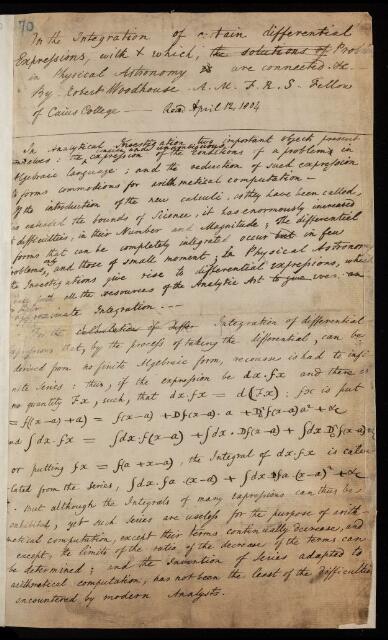 70
On the Integration of certain differential
Expressions, with & which, the solutions of Probl
in Physical Astronomy are connected &c
By Robert Woodhouse A. M. F. R. S. Fellow
of Caius College — Read April 12, 1804
In Analytical Investigation two important objects present
themselves: the expression of the conditions of a problem in
Algebraic language; and the reduction of such expression
to forms commodious for arithmetical computation —
If the introduction of the new calculi, as they have been called,
has extended the bounds of Science, it has enormously increased
its difficulties, in their Number and Magnitude; the differential
forms that can be completely integrated occur but in few
problems, and those of small moment; In Physical Astronomy,
the Investigations give rise to differential expressions, which
all the resources of the Analytic Art to give even an
approximate Integration. —
For the calculation of differ Integration of differential
expressions that, by the process of taking the differential, can be
derived from no finite Algebraic form, recourse is had to infi
nite Series: thus, if the expression be dx.fx and there is
no quantity Fx, such, that dx.fx = d(Fx): fx is put
= f((x-a)+a) = f(x-a) + Df(x-a).a + D²f(x-a)a² + &c
and ∫dx.fx = ∫dx.f(x-a) + ∫dx.Df(x-a) + ∫dx D²f(x-a)
or putting fx = f(a+x-a), the Integral of dx.fx is calcu
lated from the Series, ∫dx.fa.(x-a) + ∫dx Dfa.(x-a)² + &c
. But although the Integrals of many expressions can thus be
exhibited, yet such Series are useless for the purpose of arith-
metical computation, except their terms continually decrease, and
except, the limits of the ratio of the decrease of the terms can
be determined; and the Invention of Series adapted to
arithmetical computation, has not been the least of the difficulties
encountered by modern Analysts.